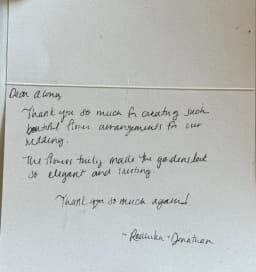 Dear
Thank you so much for creating such
beautiful flower arrangements for our
wedding.
The flowers truly made the gardens look
so elegant and
Thank you so much again!
- Radhika + Jonathan